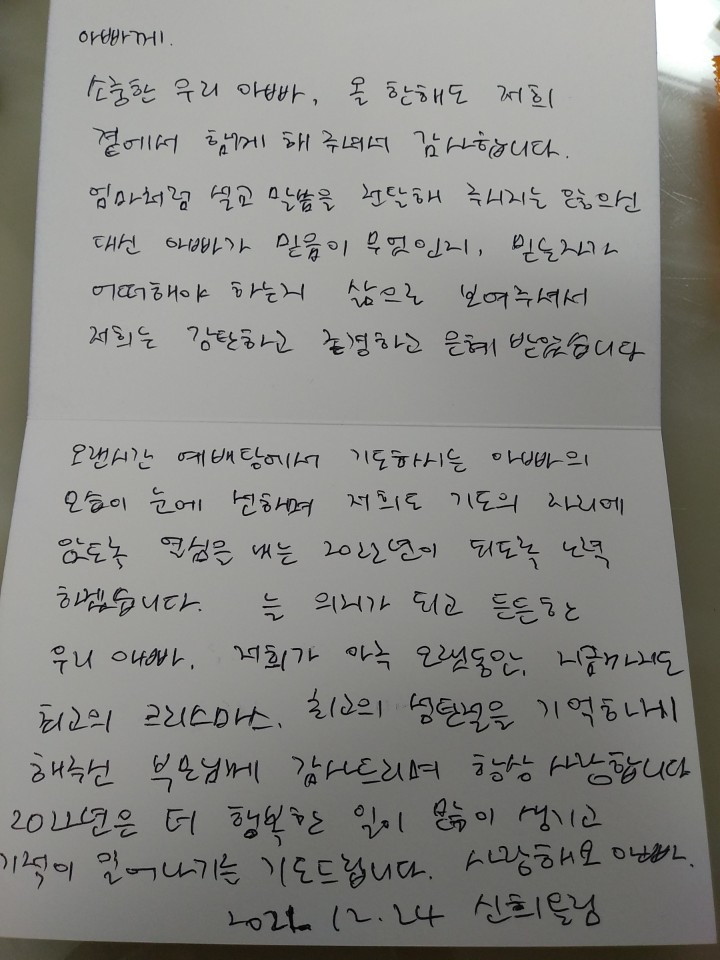 아빠께.
소중한 우리 아빠, 올 한해도 저희
곁에서 함께 해 주셔서 감사합니다.
엄마처럼 설교 말씀을 전달해 주시지는
대신 아빠가 믿음이 무엇인지, 믿는자가
어떠해야 하는지 삶으로 보여주셔서
저희는 감탄하고 존경하고 은혜 받았습니다
오랜시간 예배당에서 기도하시는 아빠의
모습이 눈에 선하며 저희도 기도의 자리에
앉도록 열심을 내는 2022년이 되도록 노력
하겠습니다. 늘 의지가 되고 든든한
우리 아빠, 저희가 아주 오랫동안, 지금까지도
최고의 크리스마스, 최고의 성탄절을 기억하게
해주신 부모님께 감사드리며 항상 사랑합니다
2022년은 더 행복한 일이 많이 생기고
기적이 일어나기를 기도드립니다. 사랑해요 아빠.
2021. 12. 24